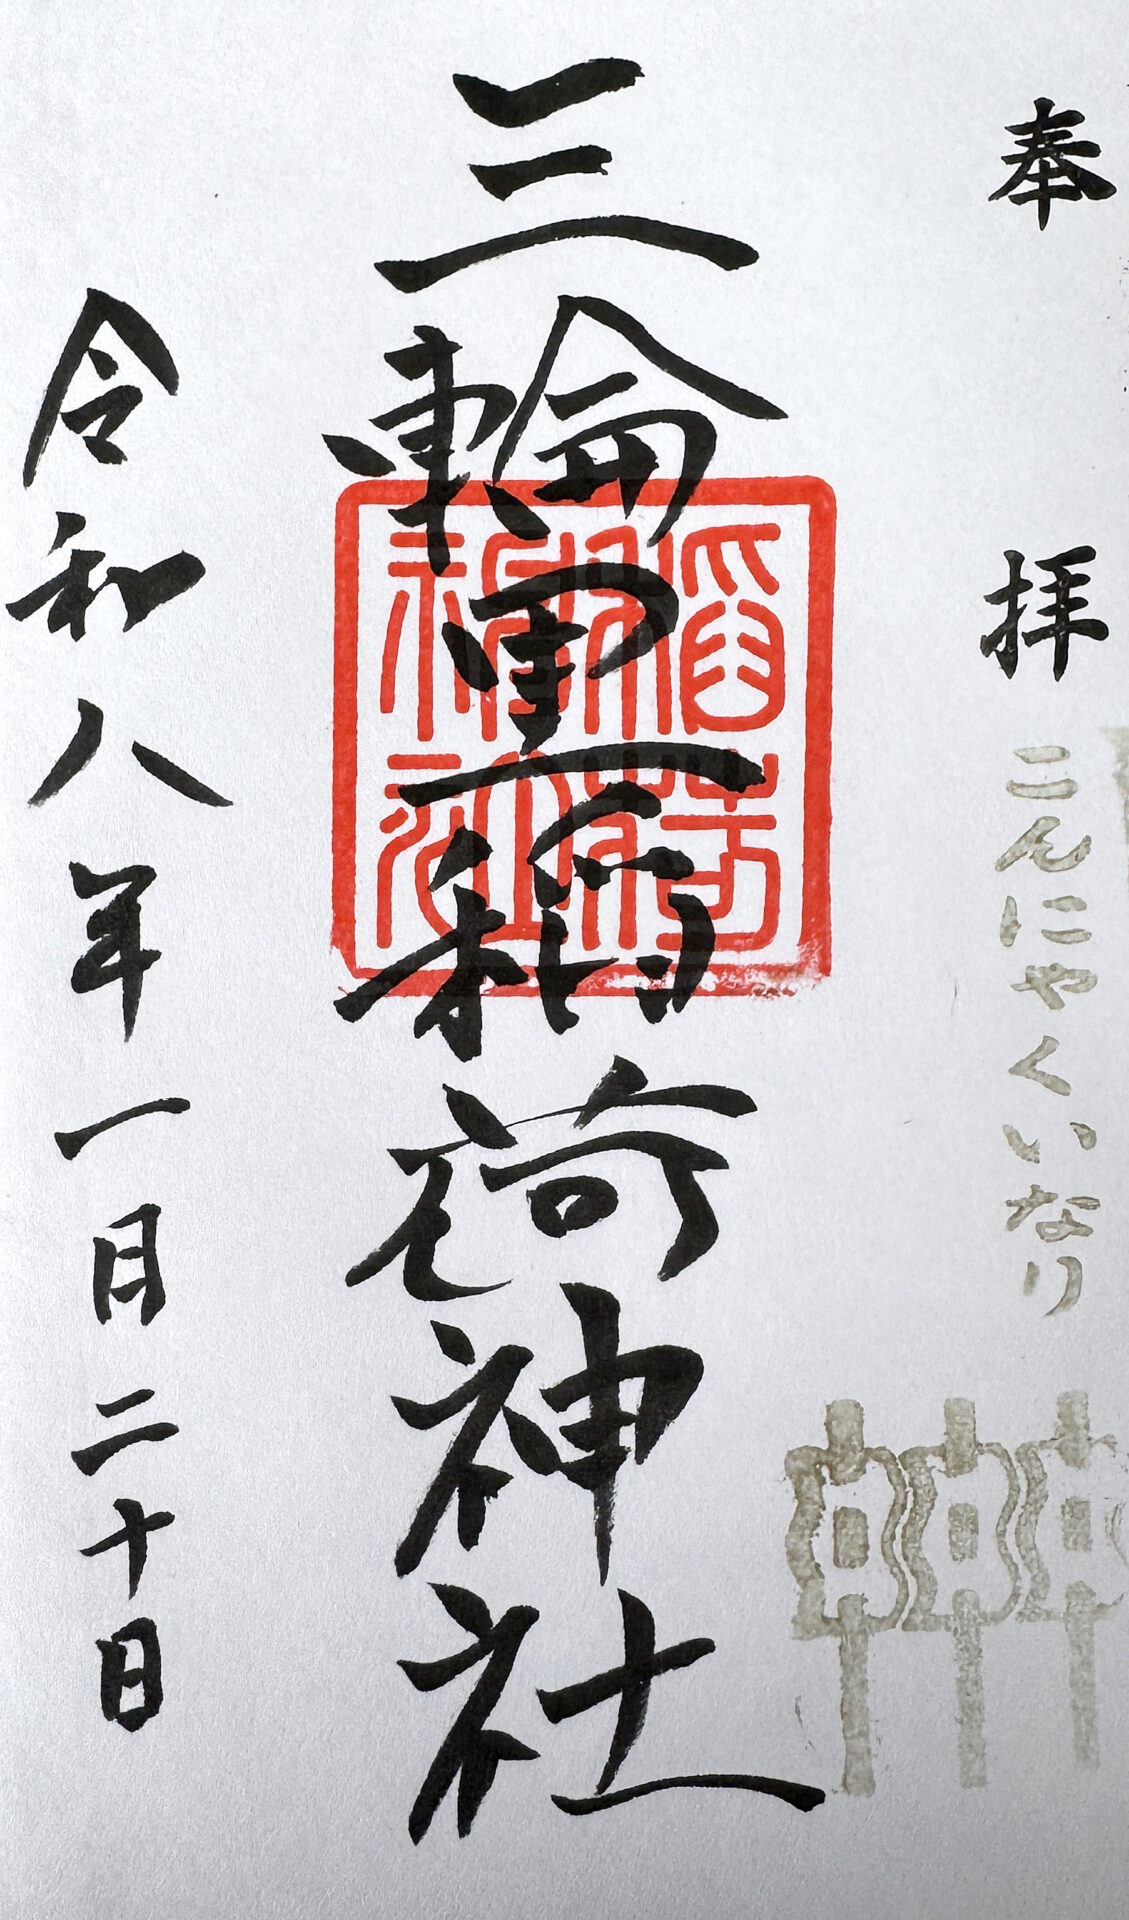 奉拝
こんにゃくいなり
三輪里稲荷神社
令和八年一月二十日